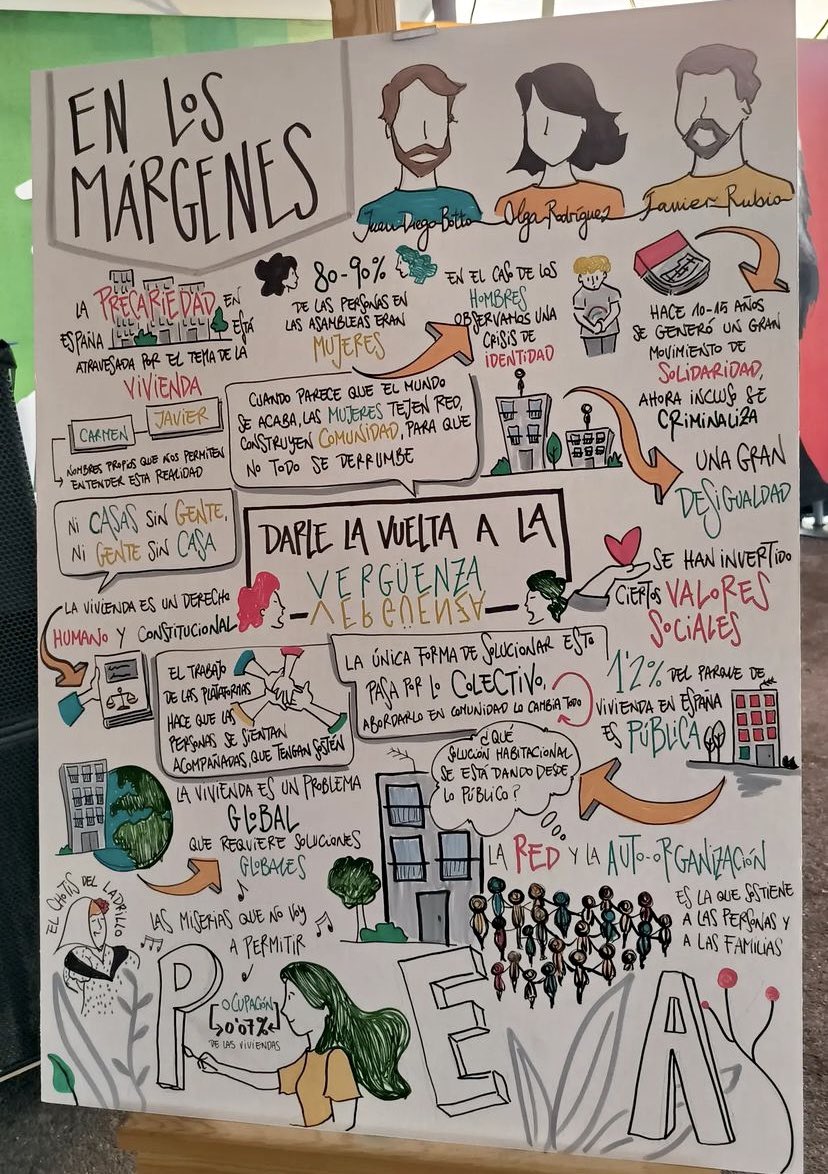 EN LOS
MÁRGENES
Juan Diego Botto
Olga Rodríguez
Javier Rubio
LA PRECARIEDAD EN
ESPAÑA ESTÁ
ATRAVESADA POR EL TEMA DE LA
VIVIENDA
80-90%
DE LAS PERSONAS EN
LAS ASAMBLEAS ERAN
MUJERES
EN EL CASO DE LOS
HOMBRES
OBSERVAMOS UNA
CRISIS DE
IDENTIDAD
HACE 10-15 AÑOS
SE GENERÓ UN GRAN
MOVIMIENTO DE
SOLIDARIDAD,
AHORA INCLUSO SE
CRIMINALIZA
CARMEN
JAVIER
NOMBRES PROPIOS QUE NOS PERMITEN
ENTENDER ESTA REALIDAD
CUANDO PARECE QUE EL MUNDO
SE ACABA, LAS MUJERES TEJEN RED,
CONSTRUYEN COMUNIDAD, PARA QUE
NO TODO SE DERRUMBE
UNA GRAN
DESIGUALDAD
NI CASAS SIN GENTE,
NI GENTE SIN CASA
DARLE LA VUELTA A LA
VERGÜENZA
VERGÜENZA
SE HAN INVERTIDO
CIERTOS VALORES
SOCIALES
LA VIVIENDA ES UN DERECHO
HUMANO Y CONSTITUCIONAL
EL TRABAJO
DE LAS PLATAFORMAS
HACE QUE LAS
PERSONAS SE SIENTAN
ACOMPAÑADAS, QUE TENGAN SOSTÉN
LA ÚNICA FORMA DE SOLUCIONAR ESTO
PASA POR LO COLECTIVO,
ABORDARLO EN COMUNIDAD LO CAMBIA TODO
1'2% DEL PARQUE DE
VIVIENDA EN ESPAÑA
ES PÚBLICA
¿QUÉ
SOLUCIÓN HABITACIONAL
SE ESTÁ DANDO DESDE
LO PÚBLICO?
LA VIVIENDA ES UN PROBLEMA
GLOBAL
QUE REQUIERE SOLUCIONES
GLOBALES
LA RED Y LA AUTO-ORGANIZACIÓN
ES LA QUE SOSTIENE
A LAS PERSONAS Y
A LAS FAMILIAS
EL CHOTIS DEL LADRILLO
LAS MISERIAS QUE NO VOY
A PERMITIR
OCUPACIÓN
0'07%
DE LAS VIVIENDAS
PEVA